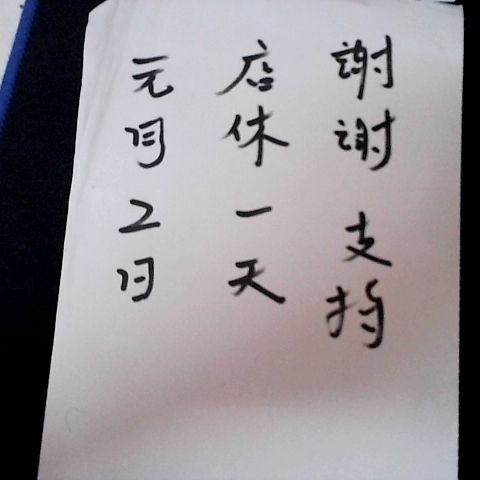 元月2日
店休一天
謝謝支持